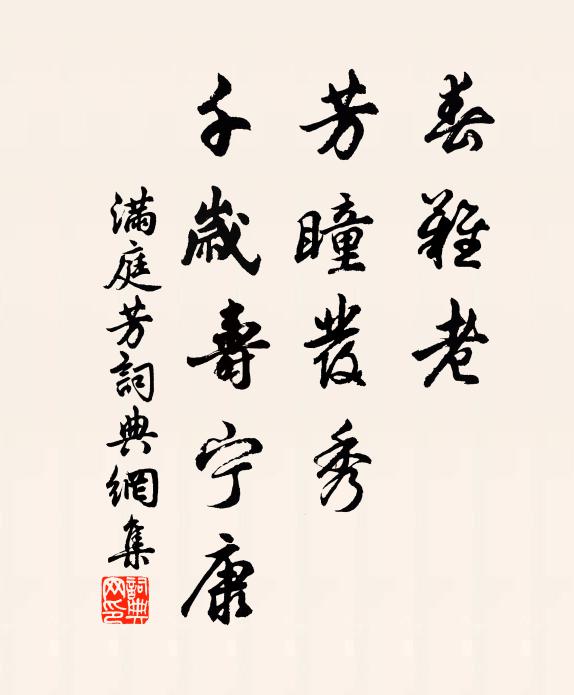 春難老
芳瞳發秀
千歲壽宁康
滿庭芳詞典網集
詞典网印